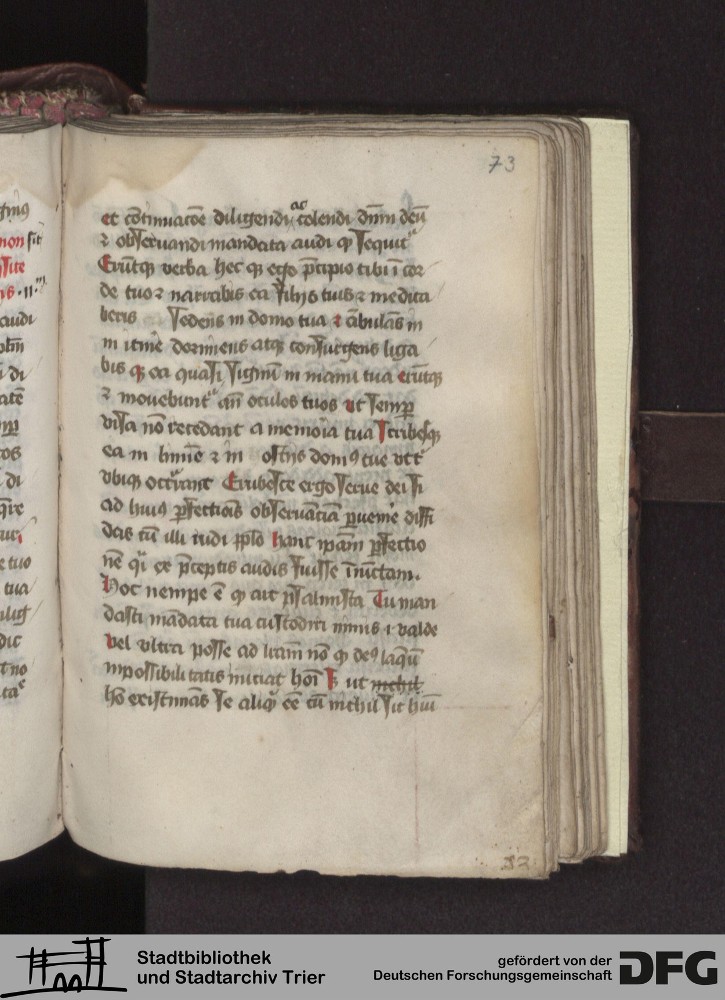 73
et cōtinuacōe diligendi ac colendi dnm̄ deū
⁊ obseruandi mandata audi qͥ sequitᷣ
Erūtqꝫ verba hec qꝫ ego p̄cipio tibi ī cor
de tuo ⁊ narrabis ea filijs tuis ⁊ medita
beris sedens in domo tua ⁊ ābulās in
in itinē dormiens atqꝫ consurgens liga
bis qꝫ ea quasi signū in manu tua erūtqꝫ
⁊ mouebuntᷣ an̄ oculos tuos vt semꝑ
visa nō recedant a memoīa tua scribesqꝫ
ea in limīe ⁊ in ostijs domꝰ tue vt tᷣ
vbiqꝫ occūrant Erubesce ergo serue dei si
ad huiꝰ ꝑfectiōis obseruāciā ꝑuenīe diffi
das cū illi rudi pplo hanc ip̄am ꝑfectio
nē qͥ ex p̄ceptis audis fuisse īniūctam.
Hoc nempe ē qͩ ait psalmista Tu man
dasti mādata tua custodiri nimis .i. valde
vel vltra posse ad lr̄am nō qͩ deꝰ laq̄ū
impossibilitatis iniciat hoī sꝫ ut nichil
hō existimās se aliqͥd eē cū nichil sit hūi
82
Stadtbibliothek
und Stadtarchiv Trier
gefördert von der
Deutschen Forschungsgemeinschaft
DFG